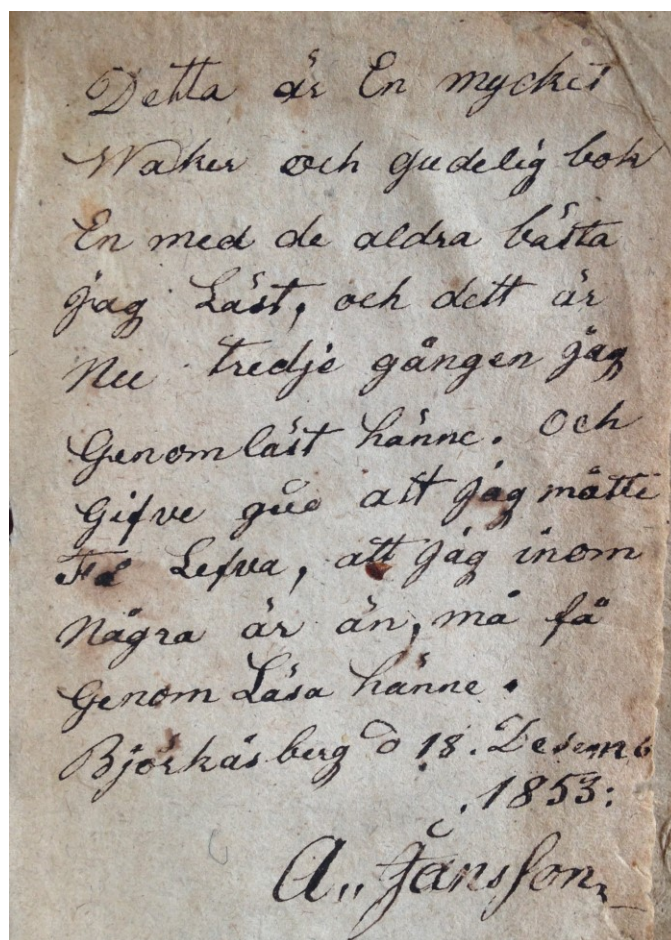 Detta är En mycket
Waker och gudelig bok
En med de aldra bästa
jag Läst, och dett är
Nu tredje gången jag
Genomläst hänne. Och
Gifve gud att jag måtte
Få Lefva, att jag inom
Några år än, må få
Genom Läsa hänne.
Björkåsberg d 18. Desemb
1853:
A,, Jansson